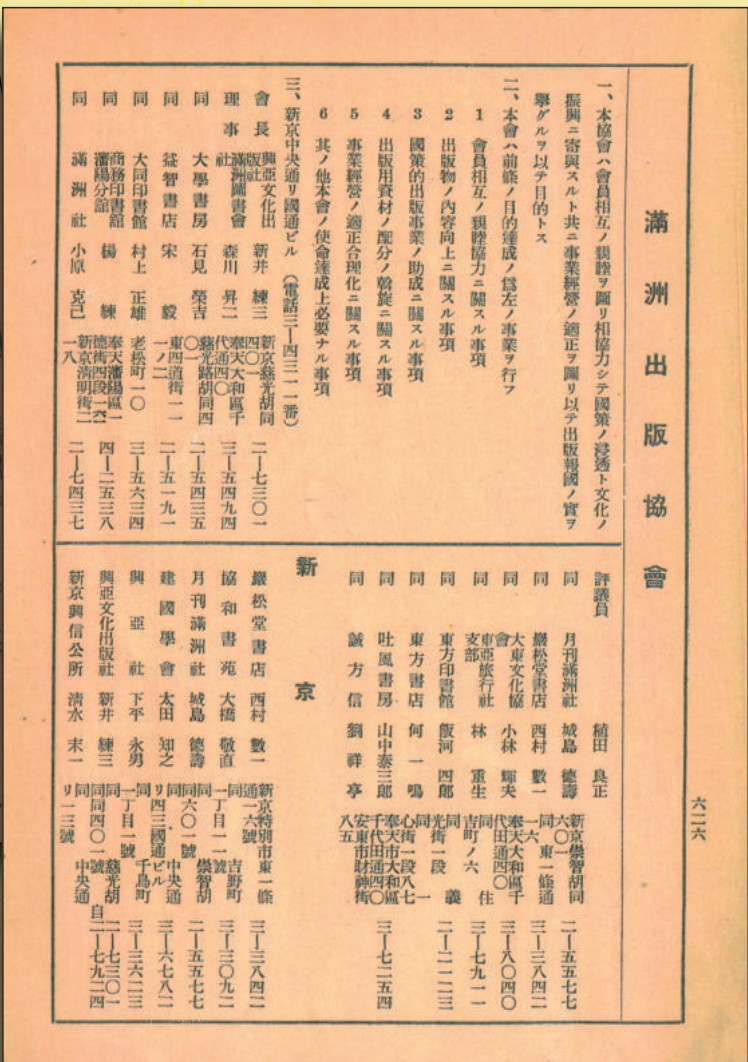 滿洲出版協會
一、本協會ハ會員相互ノ親睦ヲ圖リ相協力シテ國策ノ浸透ト文化ノ
振興ニ寄與スルト共ニ事業經營ノ適正ヲ圖リ以テ出版報國ノ實ヲ
擧グルヲ以テ目的トス
二、本會ハ前條ノ目的達成ノ爲左ノ事業ヲ行フ
1 會員相互ノ親睦協力ニ關スル事項
2 出版物ノ內容向上ニ關スル事項
3 國策的出版事業ノ助成ニ關スル事項
4 出版用資材ノ配分ノ斡旋ニ關スル事項
5 事業經營ノ適正合理化ニ關スル事項
6 其ノ他本會ノ使命達成上必要ナル事項
三、新京中央通リ國通ビル (電話三―四三一一番)
會長 興亞文化出版社 新井練三 新京慈光胡同四〇一 二―七三〇一
理事 滿洲圖書會社 森川昇二 奉天大和區千代通四〇 三―五四九四
同 大學書房 石見榮吉 慈光路胡同四〇一 二―五四三五
同 益智書店 宋毅 東四道街一一一ノ二 二―五一九一
同 大同印書館 村上正雄 老松町一〇 三―五六三四
同 商務印書館瀋陽分館 楊練 奉天瀋陽區一德街四段一六 四―二五三八
同 滿洲社 小原克己 新京淸明街二一八 二―七四三七
評議員 植田良正
同 月刊滿洲社 城島德壽 新京崇智胡同六〇一 二―五五七七
同 巖松堂書店 西村數一 同東一條通一六 三―三八四二
同 大東文化協會 小林輝夫 奉天大和區千代田通四〇 三―八〇四〇
同 東亞旅行社支部 林重生 同住吉町ノ六 三―七九一一
同 東方印書館 飯河四郎 同義光街一段 二―二一二三
同 東方書店 何一鳴 同一心街一段八七
同 吐風書房 山中泰三郎 奉天市大和區千代田通四〇 三―七二五四
同 誠方信 劉祥亭 安東市財神街八五
新京
巖松堂書店 西村數一 新京特別市東一條通一六號 三―三八四二
協和書苑 大橋敬直 同吉野町一丁目一一號 三―三〇九二
月刊滿洲社 城島德壽 同崇智胡同六〇一號 二―五五七七
建國學會 太田知之 同、中央通リ四三國通ビル 三―六七八二
興亞社 下平永男 同千鳥町一丁目一號 三―三六二三
興亞文化出版社 新井練三 同慈光胡同四〇一號 二―七三〇一
新京興信公所 淸水末一 同中央通リ一三號 自二―七九二四
六二六